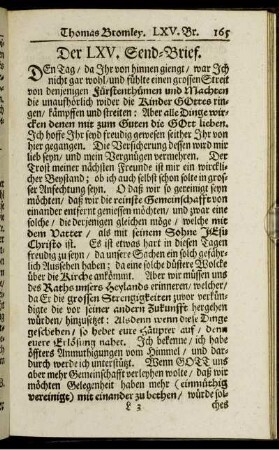 Thomas Bromley. LXV. Br. 165
Der LXV. Send-Brief.
DEn Tag / da Ihr von hinnen gieng't / war Ich
nicht gar wohl / und fühlte einen grossen Streit
von denjenigen Fürstenthümen und Machten
die unaufhörlich wider die Kinder GOttes rin-
gen / kämpffen und streiten: Aber alle Dinge wir-
cken denen mit zum Guten die GOtt lieben.
Ich hoffe Ihr seyd freudig gewesen seither Ihr von
hier gegangen. Die Versicherung dessen wird mir
lieb seyn / und mein Vergnügen vermehren. Der
Trost meiner nächsten Freunde ist mir ein wirckli-
cher Beystand; ob ich auch selbst schon solte in gros-
ser Anfechtung seyn. O daß wir so gereinigt seyn
möchten / daß wir die reinste Gemeinschafft von
einander entfernt geniessen möchten / und zwar eine
solche / die derjenigen gleichen möge / welche mit
dem Vatter / und mit seinem Sohne JEsu
Christo ist. Es ist etwas hart in diesen Tagen
freudig zu seyn / da unsere Sachen ein solch gefähr-
lich Aussehen haben; da eine solche düstere Wolcke
über die Kirche ankömmt. Aber wir müssen uns
des Raths unsers Heylands erinneren / welcher /
da Er die grossen Strengigkeiten zuvor verkün-
digte die vor seiner andern Zukunfft hergehen
würden / hinzusetzet: Alsdenn wenn diese Dinge
geschehen / so hebet eure Häupter auf / denn
euere Erlösung nahet. Ich bekenne / ich habe
öffters Anmuthigungen vom Himmel / und dar-
durch werde ich unterstützt. Wenn GOTT uns
aber mehr Gemeinschafft verleyhen wolte / daß wir
möchten Gelegenheit haben mehr (einmüthig
vereinigt) mit einander zu bethen / würde sol-
L 3 ches